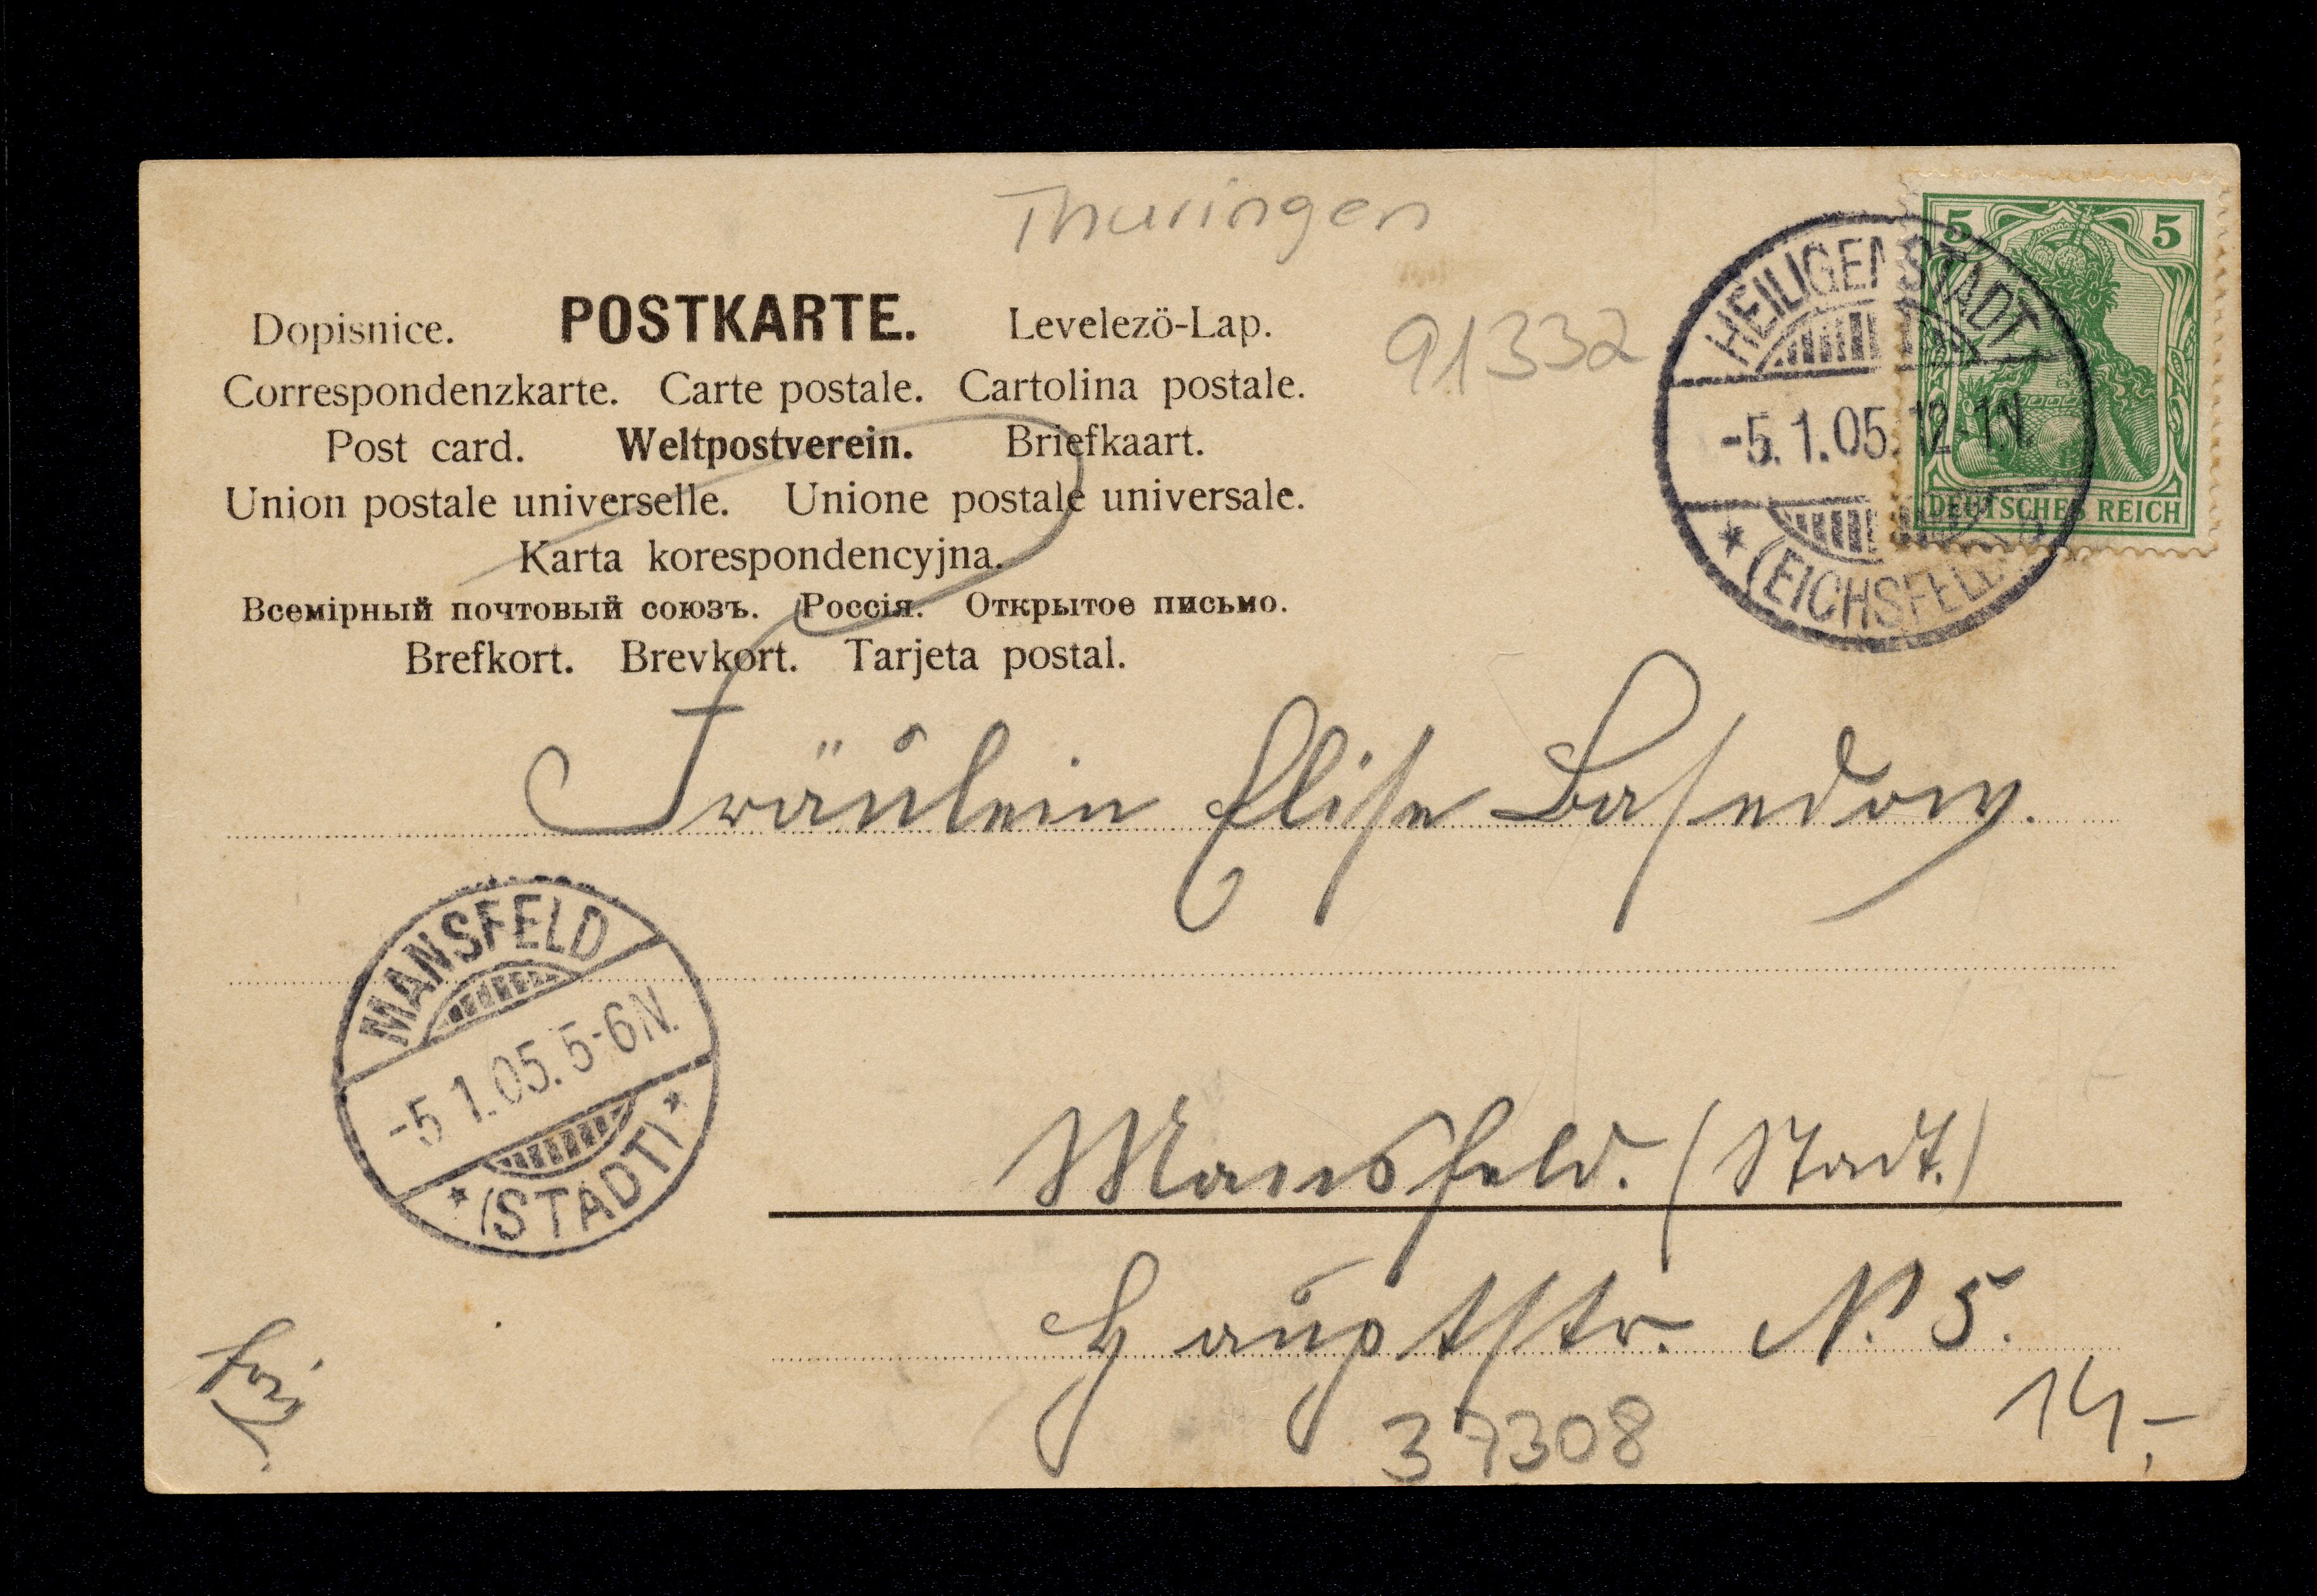 Thuringen
Dopisnice. POSTKARTE. Levelezö-Lap.
Correspondenzkarte. Carte postale. Cartolina postale.
Post card. Weltpostverein. Briefkaart.
Union postale universelle. Unione postale universale.
Karta korespondencyjna.
Всемірный почтовый союзъ. Россія. Открытое письмо.
Brefkort. Brevkort. Tarjeta postal.
91332
5 5
DEUTSCHES REICH
HEILIGENSTADT
-5.1.05.12-1N.
* (EICHSFELD)
Fräulein Elise Basedow.
MANSFELD
-5.1.05.5-6N.
* (STADT) *
Mansfeld. (Stadt.)
Hauptstr. N. 5.
37308
14,-